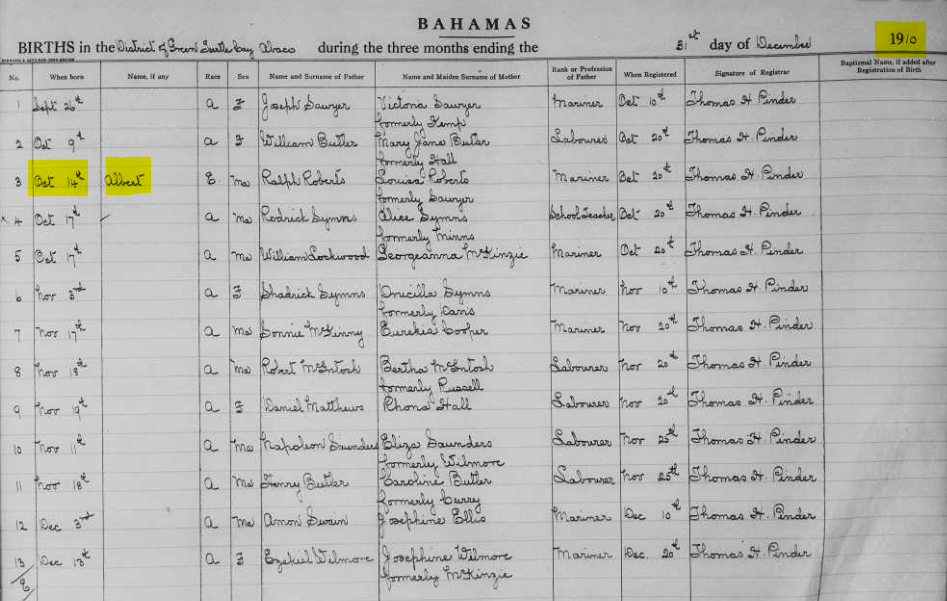 BAHAMAS
BIRTHS in the District of Green Turtle Cay Abaco during the three months ending the 31st day of December 1910
No. When born Name, if any Race Sex Name and Surname of Father Name and Maiden Surname of Mother Rank or Profession of Father When Registered Signature of Registrar Baptismal Name, if added after Registration of Birth
1 Sept 26th a F Joseph Sawyer Victoria Sawyer Mariner Oct 10th Thomas H. Pinder
formerly Kemp
2 Oct 9th a F William Butler Mary Jane Butler Labourer Oct 20th Thomas H. Pinder
formerly Hall
3 Oct 14th Albert E Ma Ralph Roberts Louisa Roberts Mariner Oct 20th Thomas H. Pinder
formerly Sawyer
4 Oct 17th a Ma Rodrick Symns Alice Symns School Teacher Oct 20th Thomas H. Pinder
formerly Minns
5 Oct 17th a Ma William Lockwood Georgeanna McKinzie Mariner Oct 20th Thomas H. Pinder
6 Nov 3rd a F Shadrick Symns Drucilla Symns Mariner Nov 10th Thomas H. Pinder
formerly Davis
7 Nov 17th a Ma McKinny Eurekia Cooper Mariner Nov 20th Thomas H. Pinder
8 Nov 18th a Ma Robert McIntosh Bertha McIntosh Labourer Nov 20th Thomas H. Pinder
formerly Russell
9 Nov 19th a F Daniel Matthews Rhona Hall Labourer Nov 20th Thomas H. Pinder
10 Nov 11th a Ma Napoleon Saunders Eliza Saunders Labourer Nov 25th Thomas H. Pinder
formerly Wilmore
11 Nov 18th a Ma Henry Butler Caroline Butler Labourer Nov 25th Thomas H. Pinder
formerly Curry
12 Dec 3rd a Ma Amon Swain Josephine Ellis Mariner Dec 10th Thomas H. Pinder
13 Dec 13th a F Ezekiel Wilmore Josephine Wilmore Mariner Dec. 20th Thomas H. Pinder
formerly McKinzie